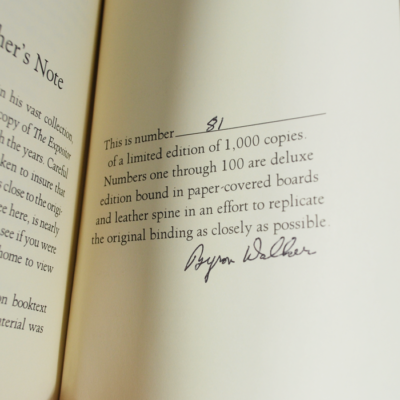 her's Note
n his vast collection,
copy of The Expositor
h the years. Careful
ken to insure that
s close to the orig-
ee here, is nearly
see if you were
home to view
n booktext
terial was
This is number 81
of a limited edition of 1,000 copies.
Numbers one through 100 are deluxe
edition bound in paper-covered boards
and leather spine in an effort to replicate
the original binding as closely as possible.
Byron Walker